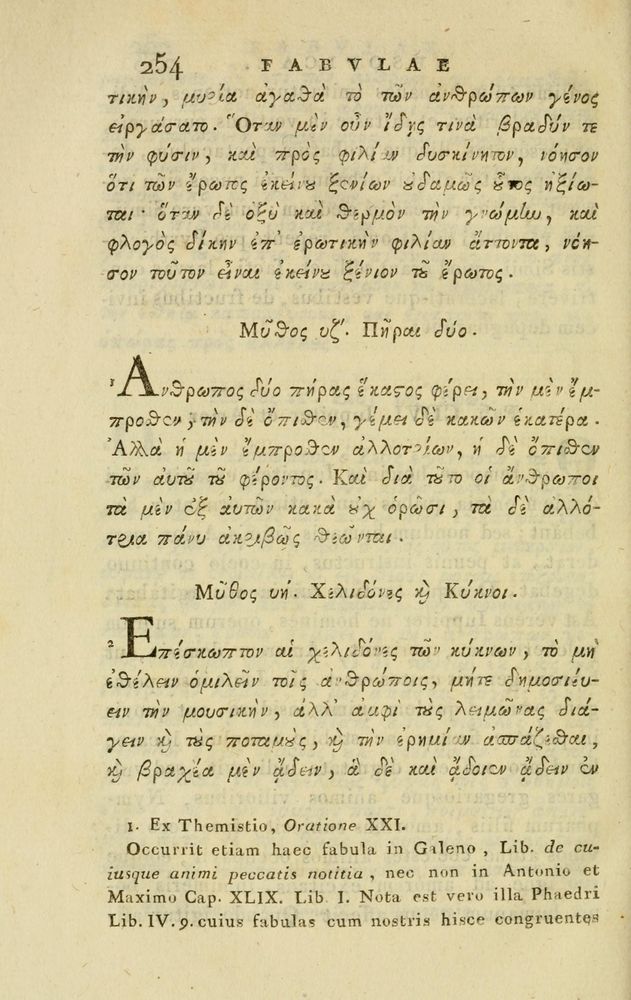 254 FABVLAE
τικὴν, μυρία ἀγαθὰ τὸ τῶν ἀνθρώπων γένος
εἰργάσατο. Ὅταν μὲν οὖν ἴδῃς τινὰ βραδύν τε
τὴν φύσιν, καὶ πρὸς φιλίαν δυσκίνητον, νόησον
ὅτι τῶν ἔρωτος ἐκείνου ξενίων οὐδαμῶς οὗτος ἠξίω-
ται· ὅταν δὲ ὀξὺ καὶ θερμὸν τὴν γνώμην, καὶ
φλογὸς δίκην ἐπ' ἐρωτικὴν φιλίαν ἄττοντα, νόη-
σον τοῦτον εἶναι ἐκείνου ξένιον τοῦ ἔρωτος.
Μῦθος υζʹ. Πῆραι δύο.
¹ Ἄνθρωπος δύο πήρας ἕκαστος φέρει, τὴν μὲν ἔμ-
προσθεν, τὴν δὲ ὄπισθεν, γέμει δὲ κακῶν ἑκατέρα.
Ἀλλὰ ἡ μὲν ἔμπροσθεν ἀλλοτρίων, ἡ δὲ ὄπισθεν
τῶν αὐτοῦ τοῦ φέροντος. Καὶ διὰ τοῦτο οἱ ἄνθρωποι
τὰ μὲν ἐξ αὐτῶν κακὰ οὐχ ὁρῶσι, τὰ δὲ ἀλλό-
τρια πάνυ ἀκριβῶς θεῶνται.
Μῦθος υή. Χελιδόνες καὶ Κύκνοι.
² Ἐπέσκωπτον αἱ χελιδόνες τῶν κύκνων, τὸ μὴ
ἐθέλειν ὁμιλεῖν τοῖς ἀνθρώποις, μήτε δημοσιεύ-
ειν τὴν μουσικὴν, ἀλλ' ἀμφὶ τοὺς λειμῶνας διά-
γειν καὶ τοὺς ποταμοὺς, καὶ τὴν ἐρημίαν ἀσπάζεσθαι,
καὶ βραχέα μὲν ᾄδειν, ἃ δὲ καὶ ᾄδοιεν ᾄδειν ἐν
1. Ex Themistio, Oratione XXI.
Occurrit etiam haec fabula in Galeno, Lib. de cu-
iusque animi peccatis notitia, nec non in Antonio et
Maximo Cap. XLIX. Lib I. Nota est vero illa Phaedri
Lib. IV. 9. cuius fabulas cum nostris hisce congruentes